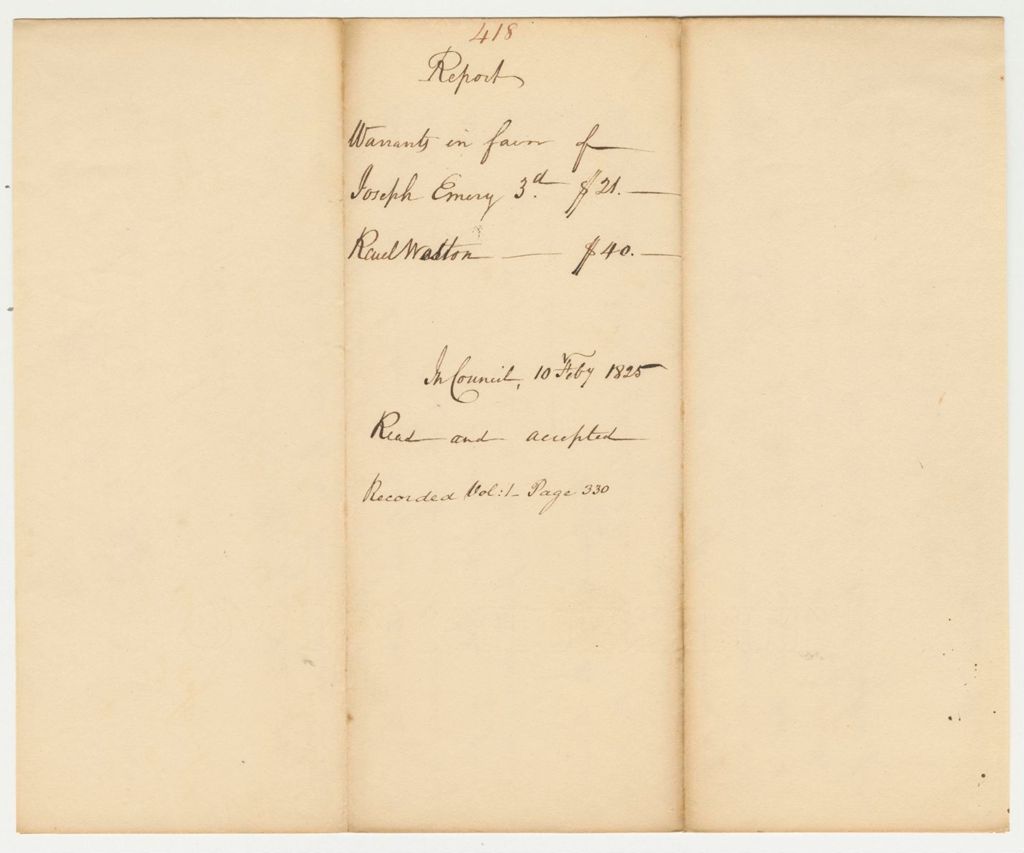 418
Report
Warrants in favor of
Joseph Emery 3d. $21.—
Weston — $40.—
In Council, 10 Feby 1825
Read and accepted
Recorded Vol: 1 - Page 330